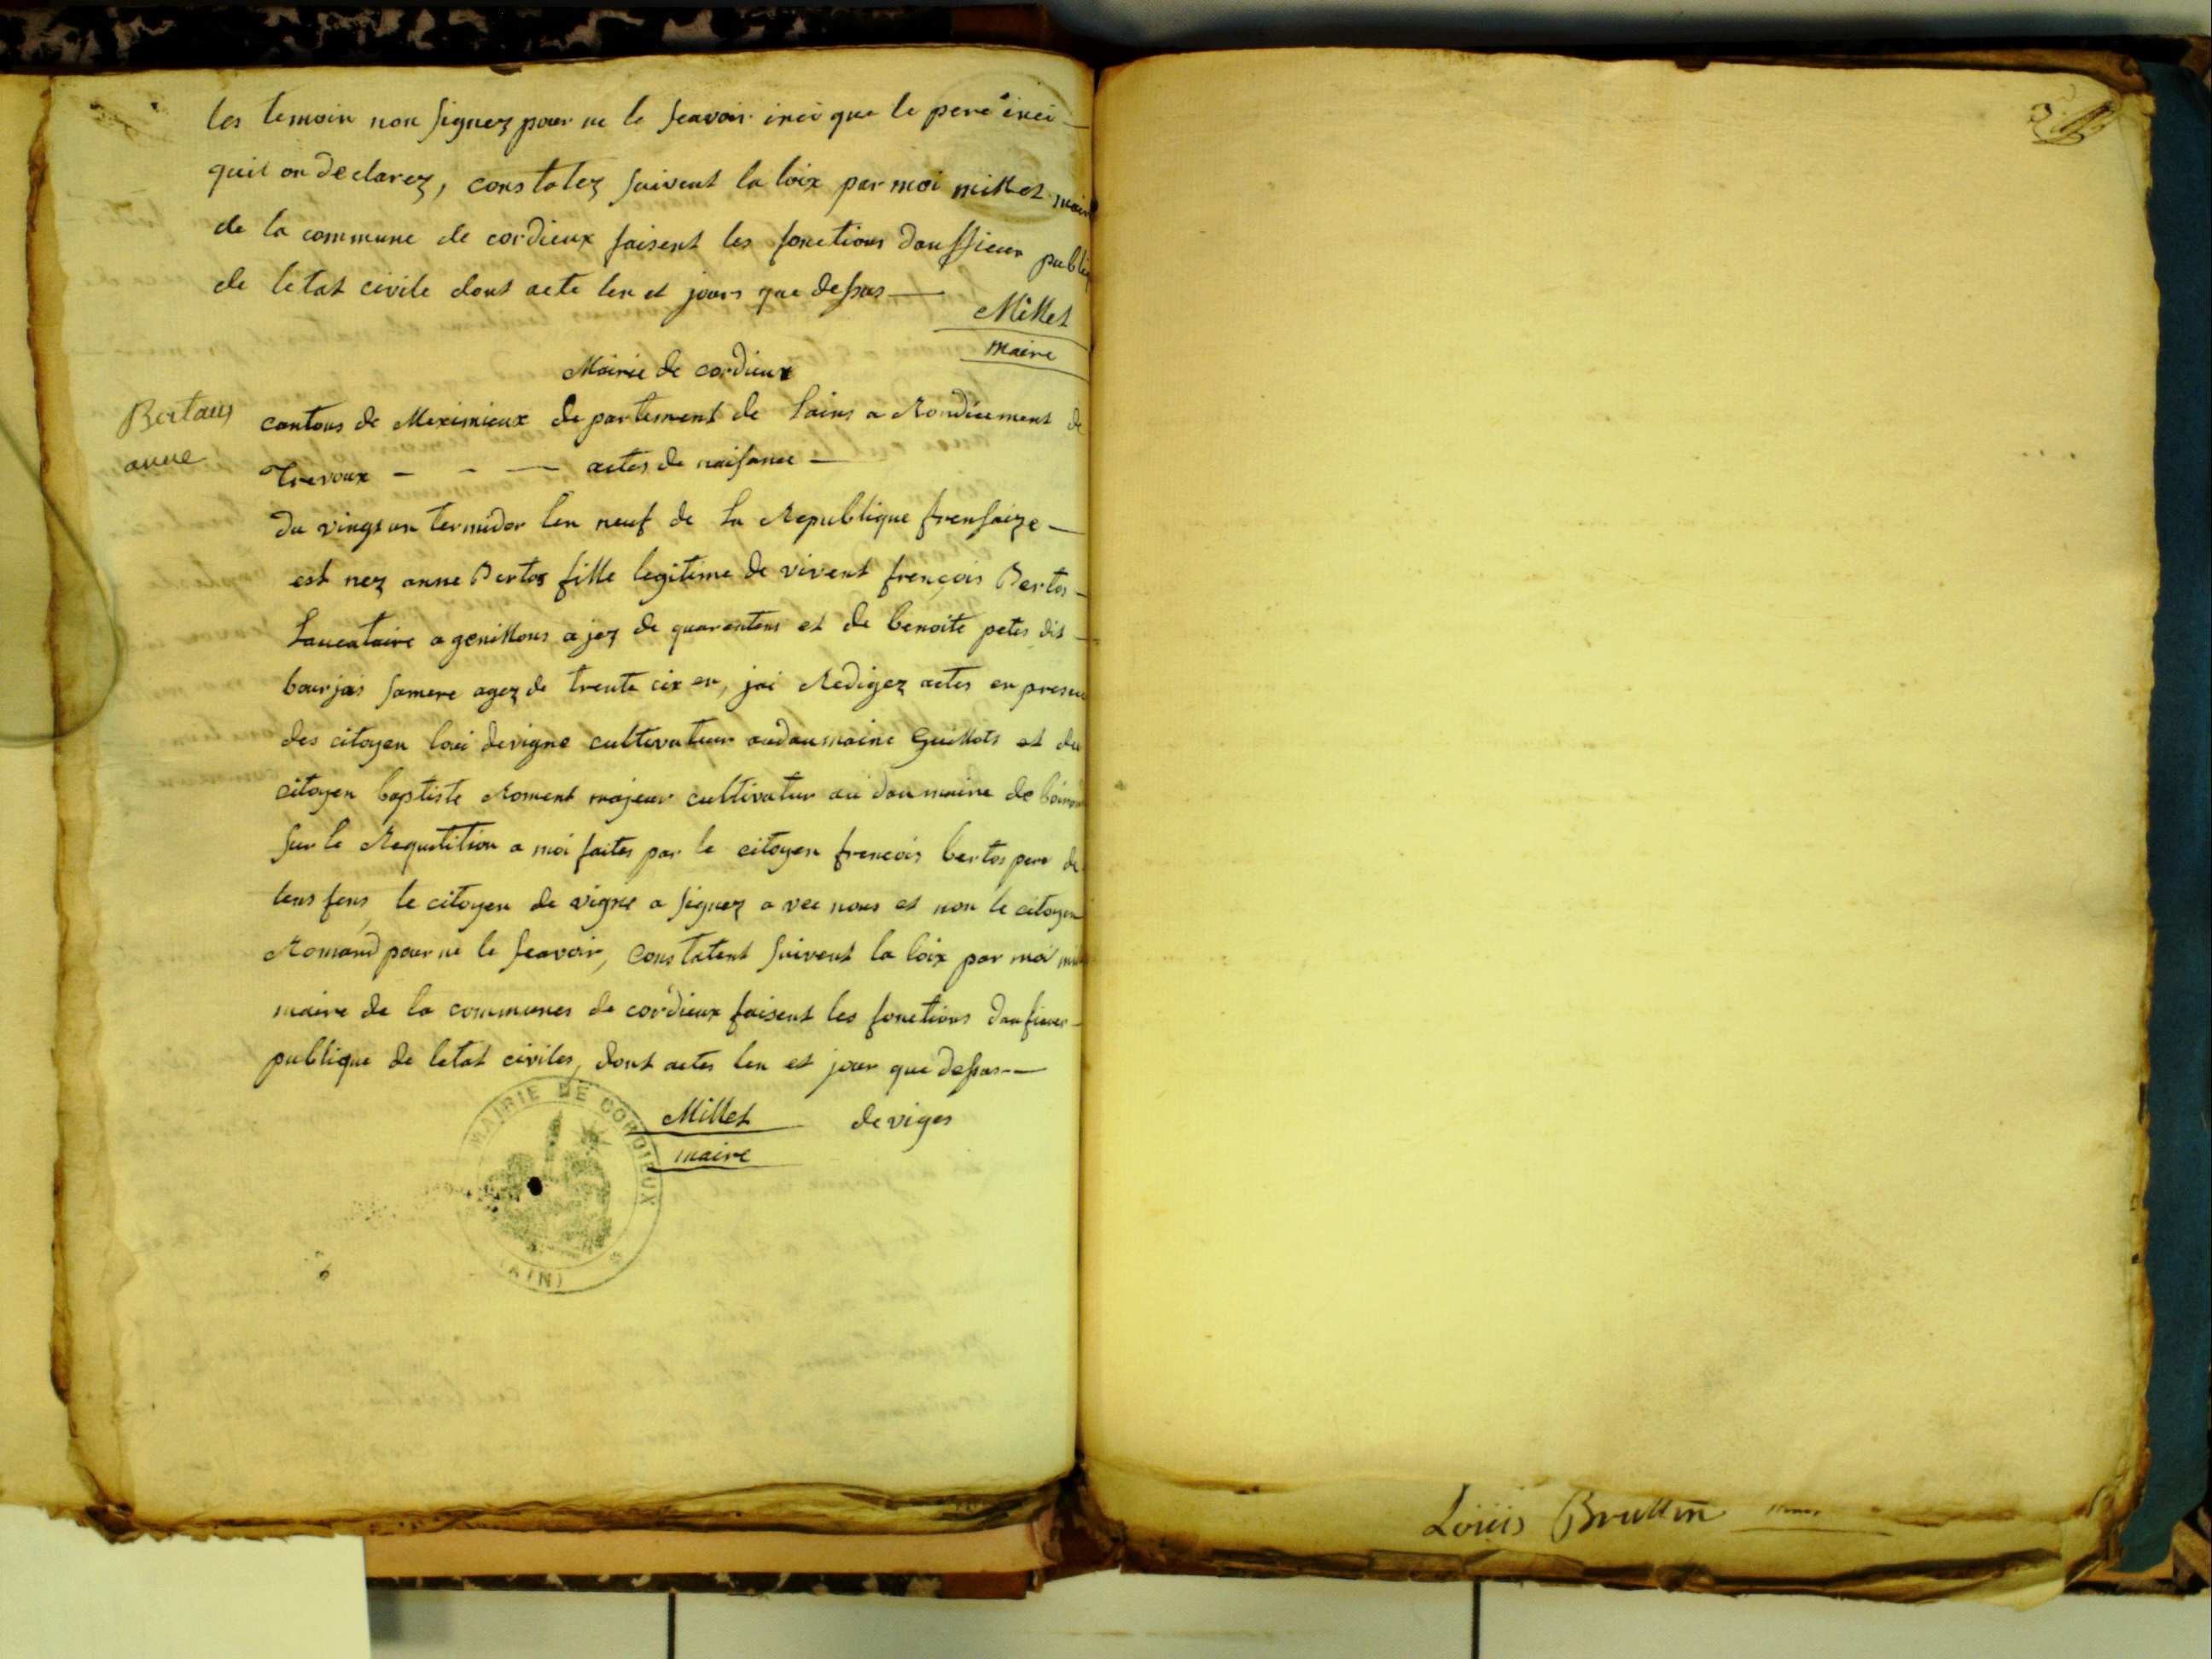 les temoin non signez pour ne le scavoir inci que le pere inci
quil on declarez, constatez suivent la loix par moi millet mair
de la commune de cordieux faisent les fonctions dausficier publiq
de letat civile dont acte len et jours que dessus
Millet
maire
Mairie de cordieux
Bertaus
anne
cantons de Meximieux departement de Lains arondicement de
Trevoux - - - actes de naisance
du vingt un termidor len neuf de La Republique frensaize
est nez anne Bertos fille legitime de vivent françois Bertos
Laucataire a genillons ajez de quarentens et de benoite petes dit
bourjais samere agez de trente cix en, jai Redigez actes en presen
des citoyen loui devigne cultivateur audaumaine Guillots et du
citoyen baptiste Roment majeur cultivatur au daumaine de
sur le Requetition a moi faites par le citoyen francois bertos pere de
lens fens, le citoyen de vigne a signez a vec nous et non le citoyen
Romand pour ne le scavoir, constatent suivent la loix par moi
maire de la communes de cordieux faisent les fonctions daufisier
publique de letat civiles, dont actes len et jour que dessus
Millet de viges
maire
MAIRIE DE CORDIEUX
(AIN)
3
Louis Bruttin